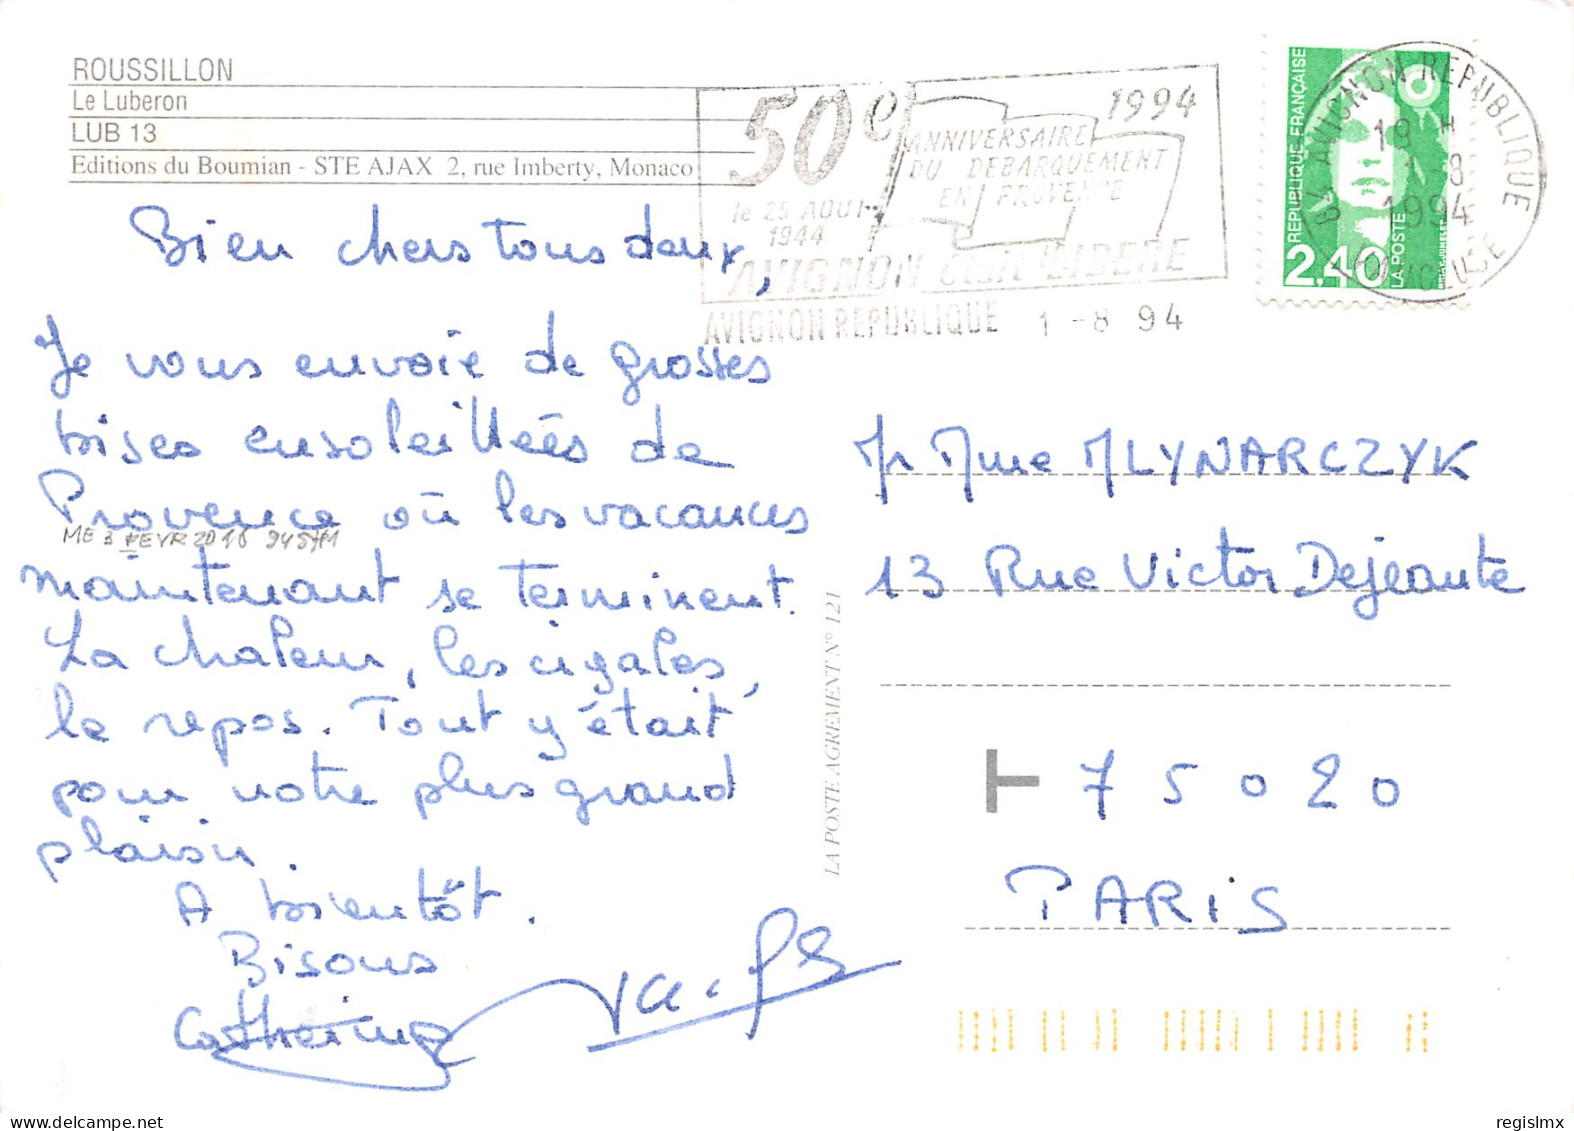 ROUSSILLON
Le Luberon
LUB 13
Editions du Boumian - STE AJAX 2, rue Imberty, Monaco
50e
1994
ANNIVERSAIRE
DU DEBARQUEMENT
EN PROVENCE
le 25 AOUT
1944
AVIGNON était LIBERE
AVIGNON REPUBLIQUE 1 -8 94
REPUBLIQUE FRANÇAISE
LA POSTE
2,40
84 AVIGNON REPUBLIQUE
19 H
1-8
1994
VAUCLUSE
Bien chers tous deux,
Je vous envoie de grosses
bises ensoleillées de
Provence où les vacances
maintenant se terminent.
La chaleur, les cigales,
le repos. Tout y était
pour notre plus grand
plaisir.
A bientôt.
Bisous
Catherine
ME 3 FEVR 2016
LA POSTE AGREMENT N° 121
Mr Mme MLYNARCZYK
13 Rue Victor Dejeante
T 75020
PARIS
regislmx